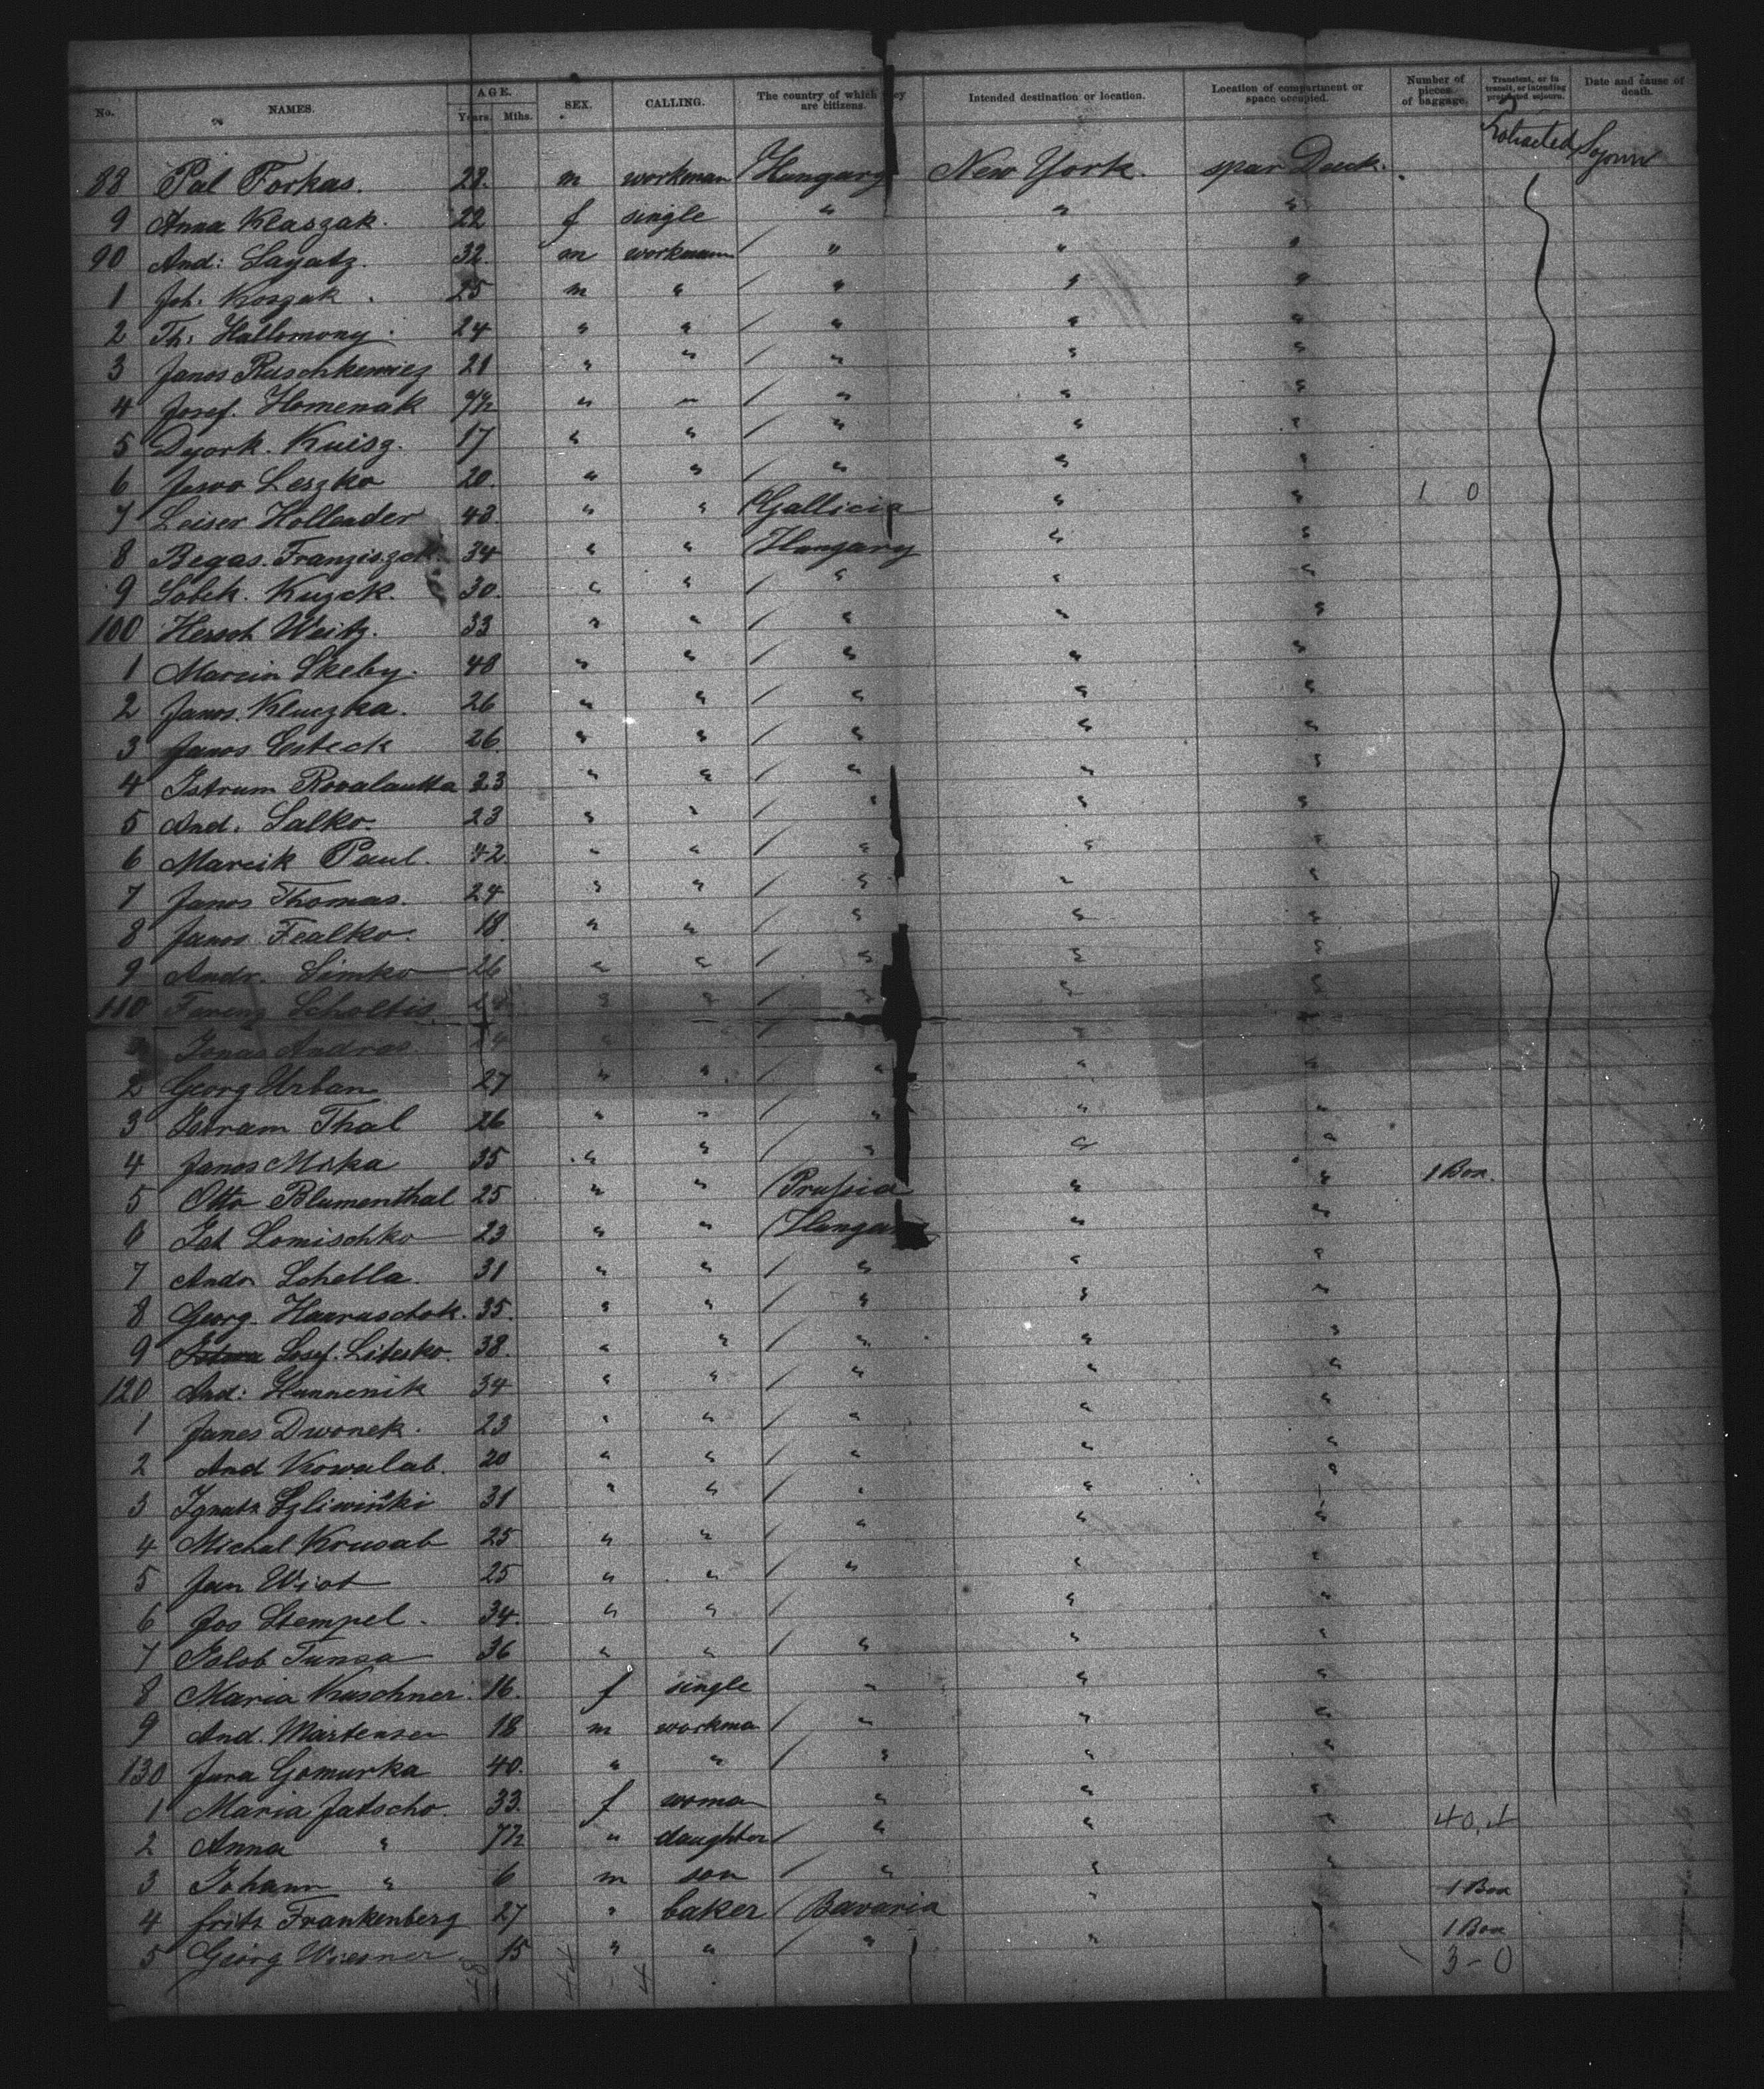 No. NAMES. AGE. Years. Mths. SEX. CALLING. The country of which they are citizens. Intended destination or location. Location of compartment or space occupied. Number of pieces of baggage. Transient, or in transit, or intending protracted sojourn. Date and cause of death.
Protracted Sojourn
88 Pal Forkas. 28. m workman Hungary New York. spar Deck.
9 Anna Klaszak. 22 f single " " "
90 And: Layatz. 32. m workmann " " "
1 Joh. Koszak. 25 m " " " "
2 Th. Hallomony. 24 " " " " "
3 Janos Ruschkewicz 21 " " " " "
4 Josef. Homenak " " " " "
5 Dyork. Kuisz. 17 " " " " "
6 Leszko 20. " " " " "
7 Leiser Hollender 43. " " Gallicia " " 1 0
8 Begas. Franziszek. 34 " " Hungary " "
9 Sobek. Kuzck. 30. " " " " "
100 Hersch Weitz. 33 " " " " "
1 Marcin Skeby. 48 " " " " "
2 Janos. Kluczka. 26 " " " " "
3 Janos Esteck 26. " " " " "
4 Istrum Rovalautta 23 " " " " "
5 And. Salko. 23 " " " " "
6 Marcik Paul. 42. " " " " "
7 Janos Thomas. 24 " " " " "
8 Janos Fealko. 18. " " " " "
9 Andr. Simko 26 " " " " "
110 Ferenz Scholtis " " " " "
Andras
2 Georg Urban 27 " " " " "
3 Thal 26 " " " " "
4 Janos Mika 35 " " " " "
5 Otto Blumenthal 25 " " Prussia " " 1 Box.
6 Ist Lomischko 23 " " Hungar " "
7 Andr Schella. 31 " " " " "
8 Georg. Haaruschok. 35. " " " " "
9 Josef. Litesko. 38. " " " " "
120 And: Hunnenik 34 " " " " "
1 Janes Dwonek. 23 " " " " "
2 And Kowalab. 20 " " " " "
3 Ignatz Szliwinski 31 " " " " "
4 Michal Krusab 25 " " " " "
5 Jan Wiot 25 " " " " "
6 Jos Stempel. 34. " " " "
7 Jakob Tunsa 36 " " " " "
8 Maria Kuschner. 16. f single " " "
9 And. Martensen 18 m workma " " "
130 Jura Gomurka 40. " " " " "
1 Maria Jatscho. 33. f woman " " "
2 Anna " 7½ " daughter " " "
3 Johann " 6 m son " " "
4 Fritz Frankenberg 27 " baker Bavaria " 1 Box
5 Georg Wiesner 15 " " " " " 1 Box
3 - 0